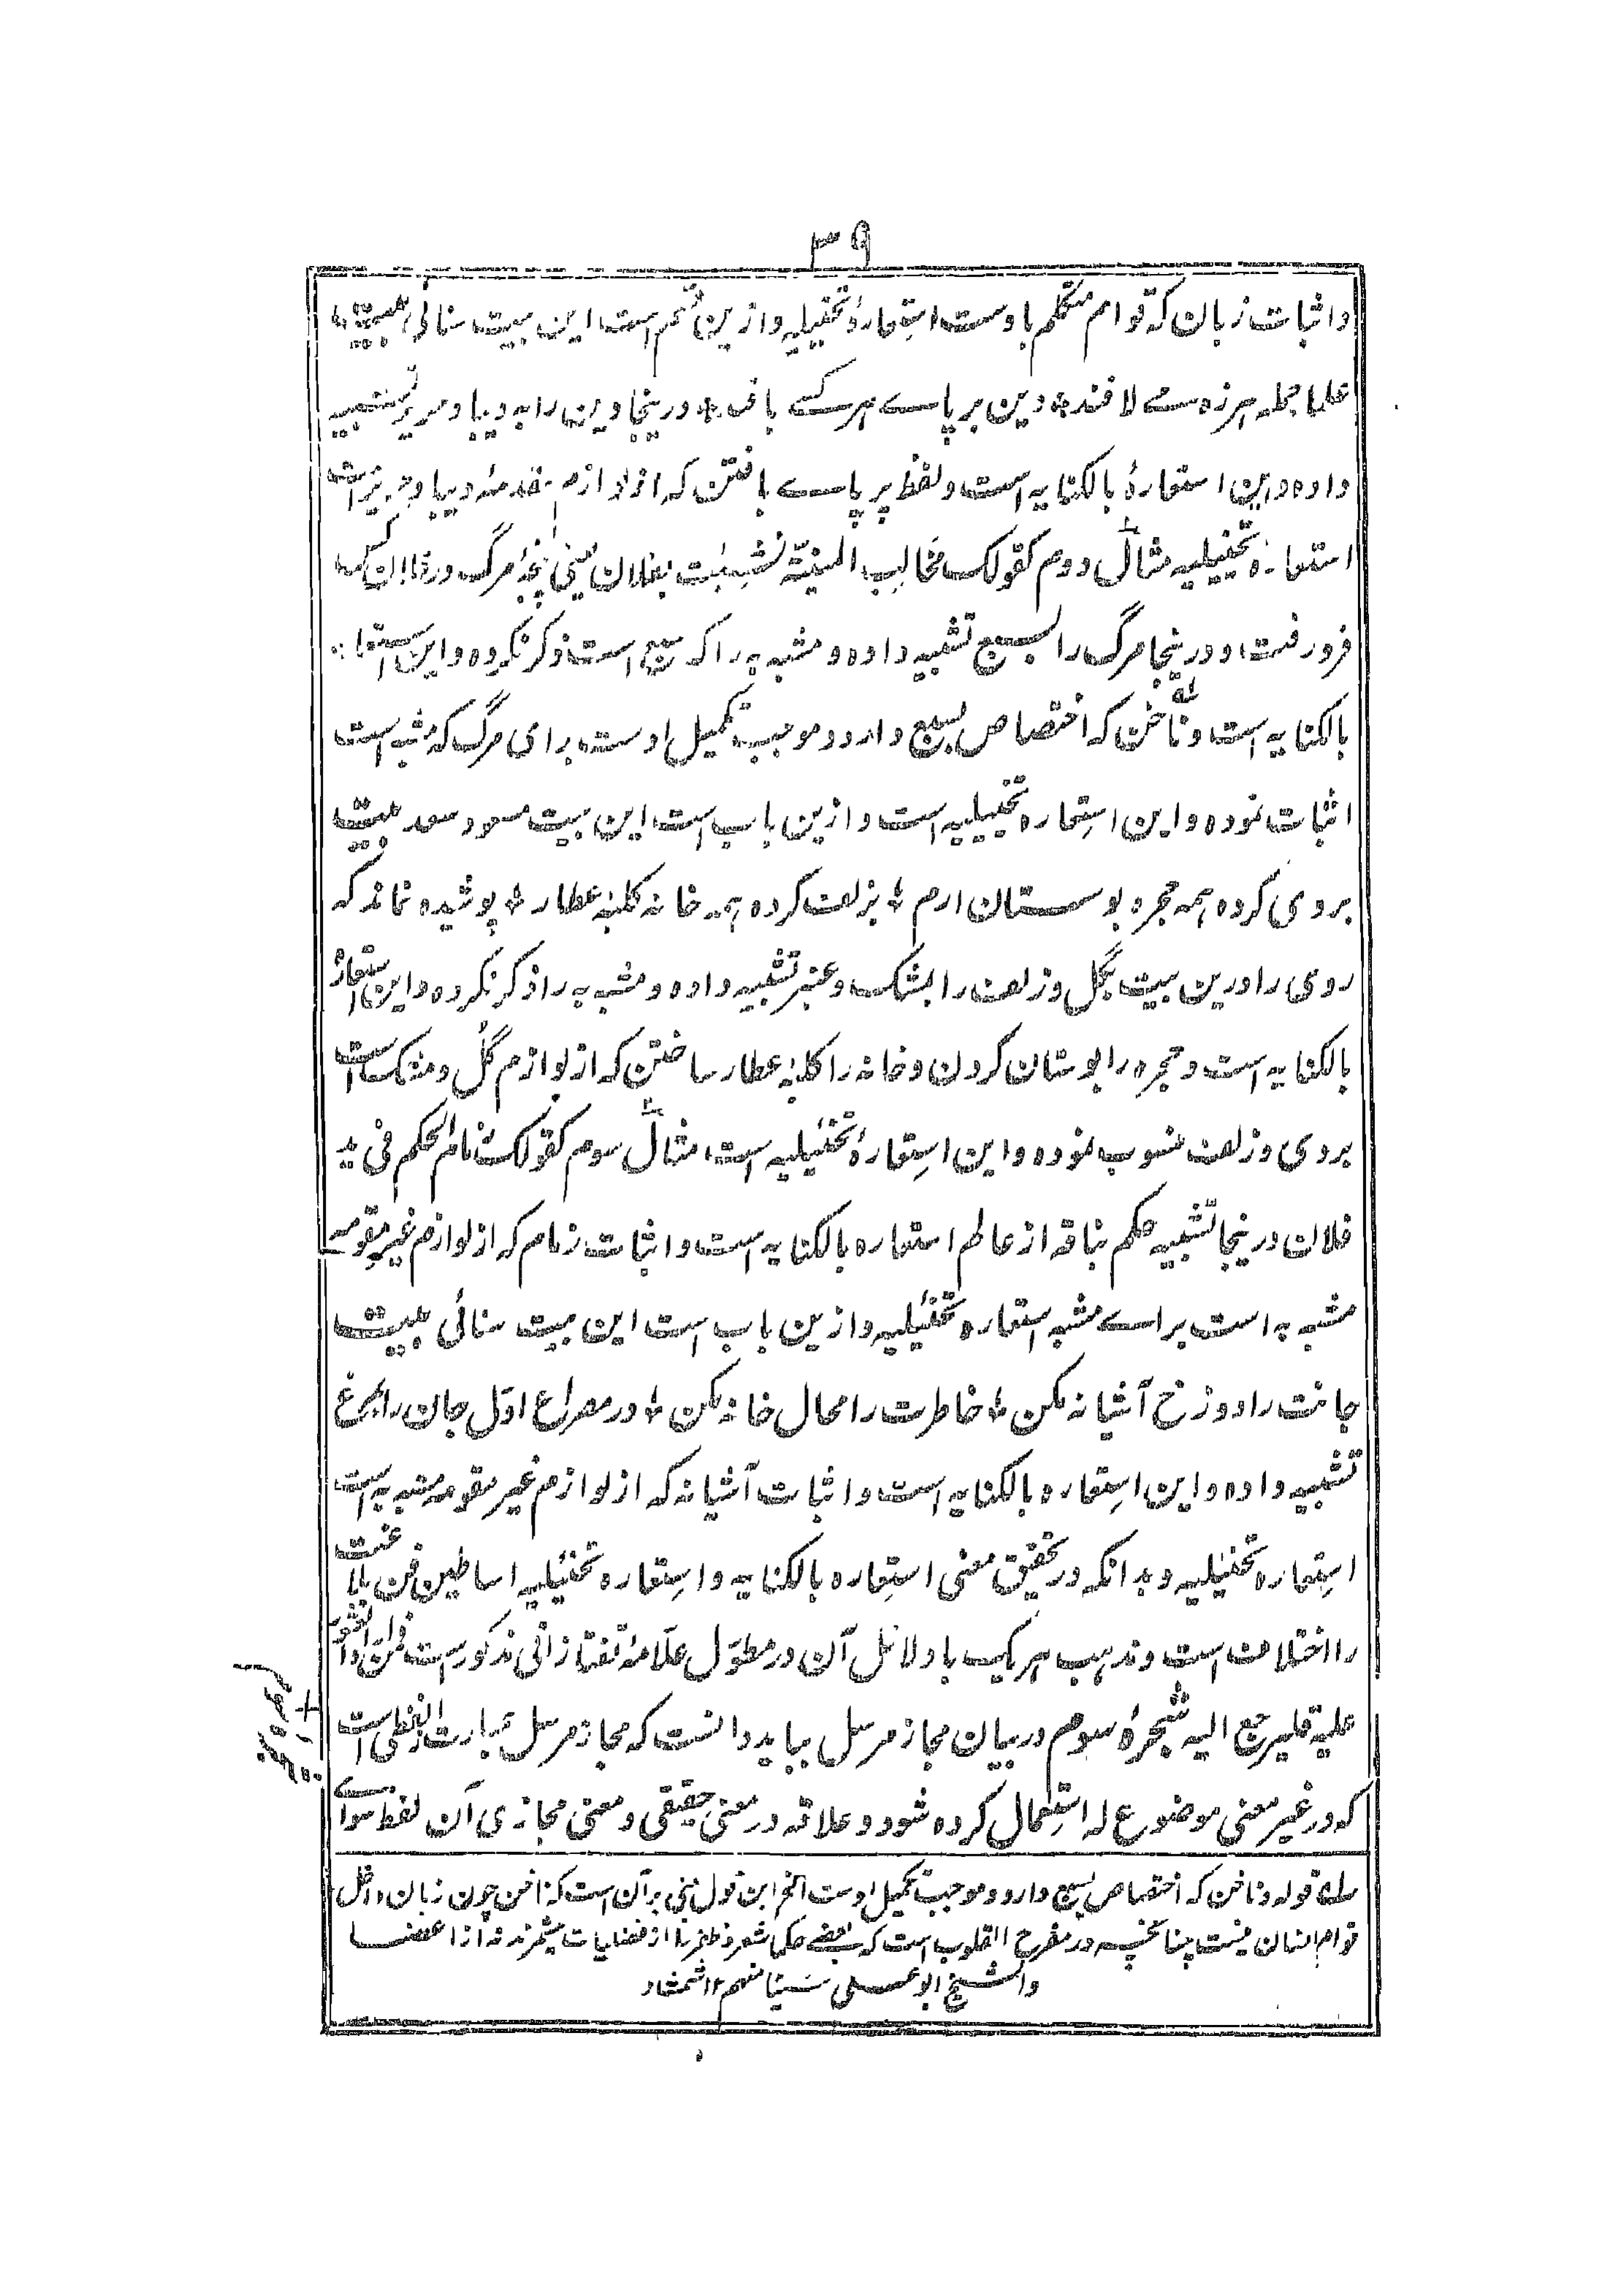 ۳۹
و اثبات زبان که قوام متکلم باوست استعارهٔ تخییلیه و ازین قسم است این بیت سنائی بیت
علما جمله هرزه می لافند * دین بر پاے هر کسے بافند * درینجا دین را به دیبا و حریر تشبیه
داده و این استعارهٔ بالکنایه است و لفظ بر پاے بافتن که از لوازم دیبا و حریر است
استعارهٔ تخییلیه مثال دوم کقولک مخالب المنیّة نشبت بفلان یعنی پنجهٔ مرگ در فلان کس
فرو رفت و درینجا مرگ را بسبع تشبیه داده و مشبه به را که سبع است ذکر نکرده و این استعاره
بالکنایه است و ناخن که اختصاص بسبع دارد و موجب تکمیل اوست برای مرگ که مشبه است
اثبات نموده و این استعاره تخییلیه است و ازین باب است این بیت مسعود سعد بیت
بروی کرده همه حجره بوستان ارم * بزلف کرده همه خانه کلبهٔ عطار * پوشیده نماند که
روی را درین بیت بگل و زلف را بمشک و عنبر تشبیه داده و مشبه به را ذکر نکرده و این استعارهٔ
بالکنایه است و حجره را بوستان کردن و خانه را کلبهٔ عطار ساختن که از لوازم گل و مشک است
بروی و زلف منسوب نموده و این استعارهٔ تخییلیه است مثال سوم کقولک زمام الحکم فی ید
فلان درینجا تشبیه حکم بناقه از عالم استعاره بالکنایه است و اثبات زمام که از لوازم غیر مقومه
مشبه به است براے مشبه استعاره تخییلیه و ازین باب است این بیت سنائی بیت
جانت را دوزخ آشیانه مکن * خاطرت را محال خانه مکن * در مصراع اول جان را بمرغ
تشبیه داده و این استعاره بالکنایه است و اثبات آشیانه که از لوازم غیر مقومه مشبه به است
استعاره تخییلیه و بدانکه در تحقیق معنی استعاره بالکنایه و استعاره تخییلیه اساطین فن بلاغت
را اختلاف است و مذهب هر یک با دلائل آن در مطوّل علّامهٔ تفتازانی مذکور است فمن اراد
علیه فلیرجع الیه شجرهٔ سوم در بیان مجاز مرسل بباید دانست که مجاز مرسل عبارت از لفظی است
که در غیر معنی موضوع له استعمال کرده شود و علاقه در معنی حقیقی و معنی مجازی آن لفظ سواے
قوله و ناخن که اختصاص بسبع دارد و موجب تکمیل اوست الخ این قول مبنی بر آن است که ناخن چون زبان داخل
قوام انسان نیست چنانچه در مفرح القلوب است که بعضے حکما شعر و ظفر را از فضلیات میشمرند نه از اعضا
و الشیخ ابو علی سینا منهم ۱۲ شمشاد